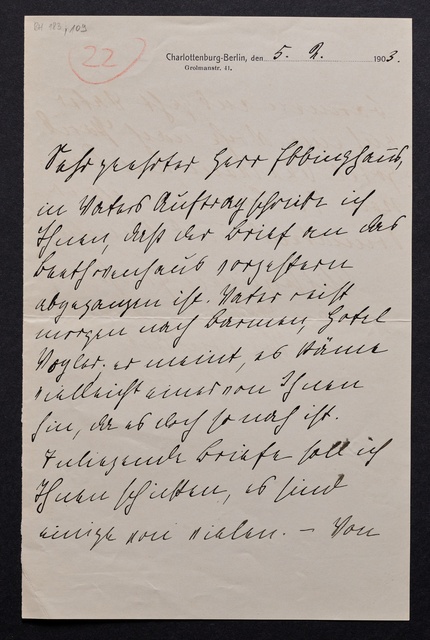 BH 193, 109
22
Charlottenburg-Berlin, den 5. 2. 1903.
Grolmanstr. 41.
Sehr geehrter Herr Ebbinghaus,
in Vaters Auftrag schreibe ich
Ihnen, daß der Brief an das
Beethovenhaus vorgestern
abgegangen ist. Vater reist
morgen nach Barmen, Hotel
Vogler. er meint, es käme
vielleicht einer von Ihnen
hin, da es doch so nah ist.
Inliegende Briefe soll ich
Ihnen schicken, es sind
einige von vielen. – Von